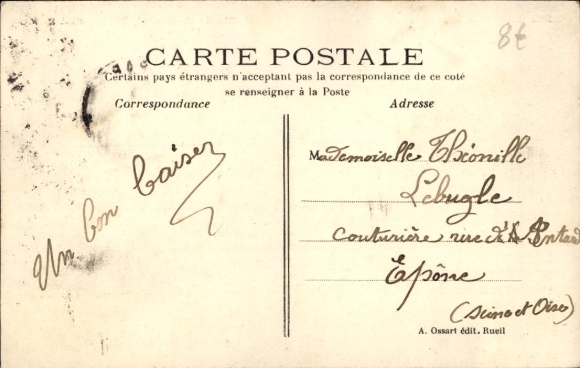 8€
CARTE POSTALE
Certains pays étrangers n'acceptant pas la correspondance de ce coté
se renseigner à la Poste
Correspondance
Adresse
Un bon baiser
Mademoiselle Théonille
Lebugle
couturière rue
Epône
(Seine et Oise)
A. Ossart édit. Rueil